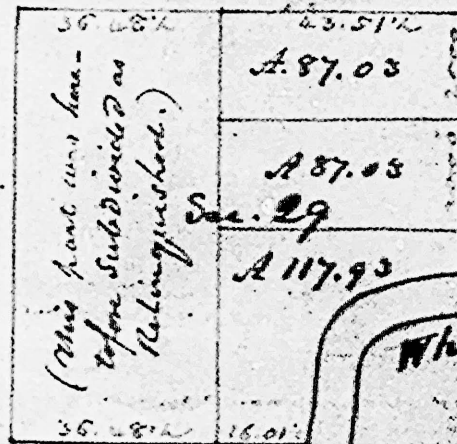 36.48
43.51
A. 87.03
A 87.03
Sec. 29
A 117.93
(This part was here-
tofore Subdivided as
Relinquished.)
Wh
36.48
16.01